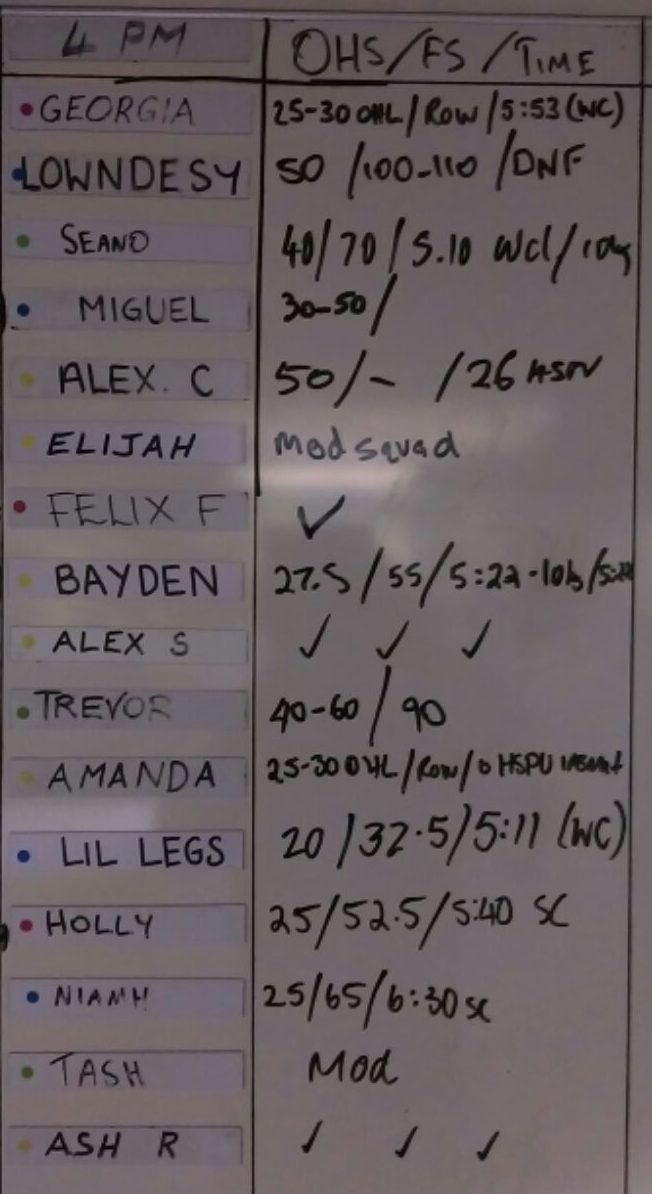 4 PM OHS/FS/TIME
GEORGIA 25-30 OHL/ROW/5:53 (WC)
LOWNDESY 50/100-110/DNF
SEANO 40/70/5.10 Wcl/10kg
MIGUEL 30-50/
ALEX. C 50/- /26 HSPU
ELIJAH Mod squad
FELIX F ✓
BAYDEN 27.5/55/5:22-10kg
ALEX S ✓ ✓ ✓
TREVOR 40-60/90
AMANDA 25-30 OHL/Row/0 HSPU
LIL LEGS 20/32.5/5:11 (WC)
HOLLY 25/52.5/5:40 SC
NIAMH 25/65/6:30 SC
TASH Mod
ASH R ✓ ✓ ✓